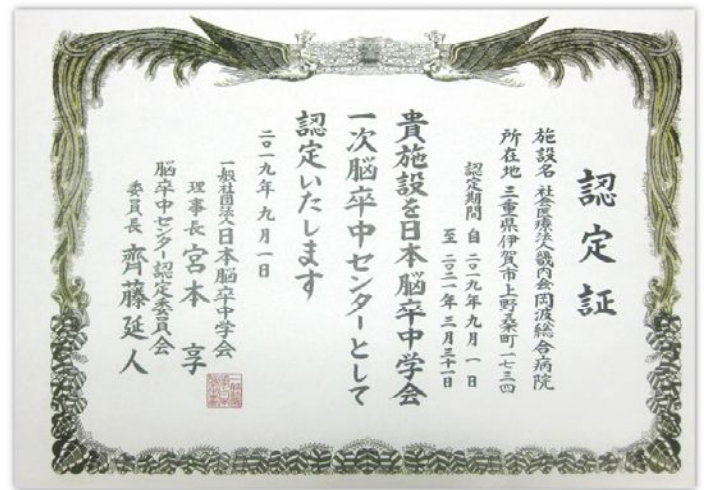 認定証
施設名 社会医療法人畿内会岡波総合病院
所在地 三重県伊賀市上野桑町一七三四
認定期間 自 二〇一九年九月一日
至 二〇二一年三月三十一日
貴施設を日本脳卒中学会
一次脳卒中センターとして
認定いたします
二〇一九年九月一日
一般社団法人日本脳卒中学会
理事長 宮本享
脳卒中センター認定委員会
委員長 齊藤延人